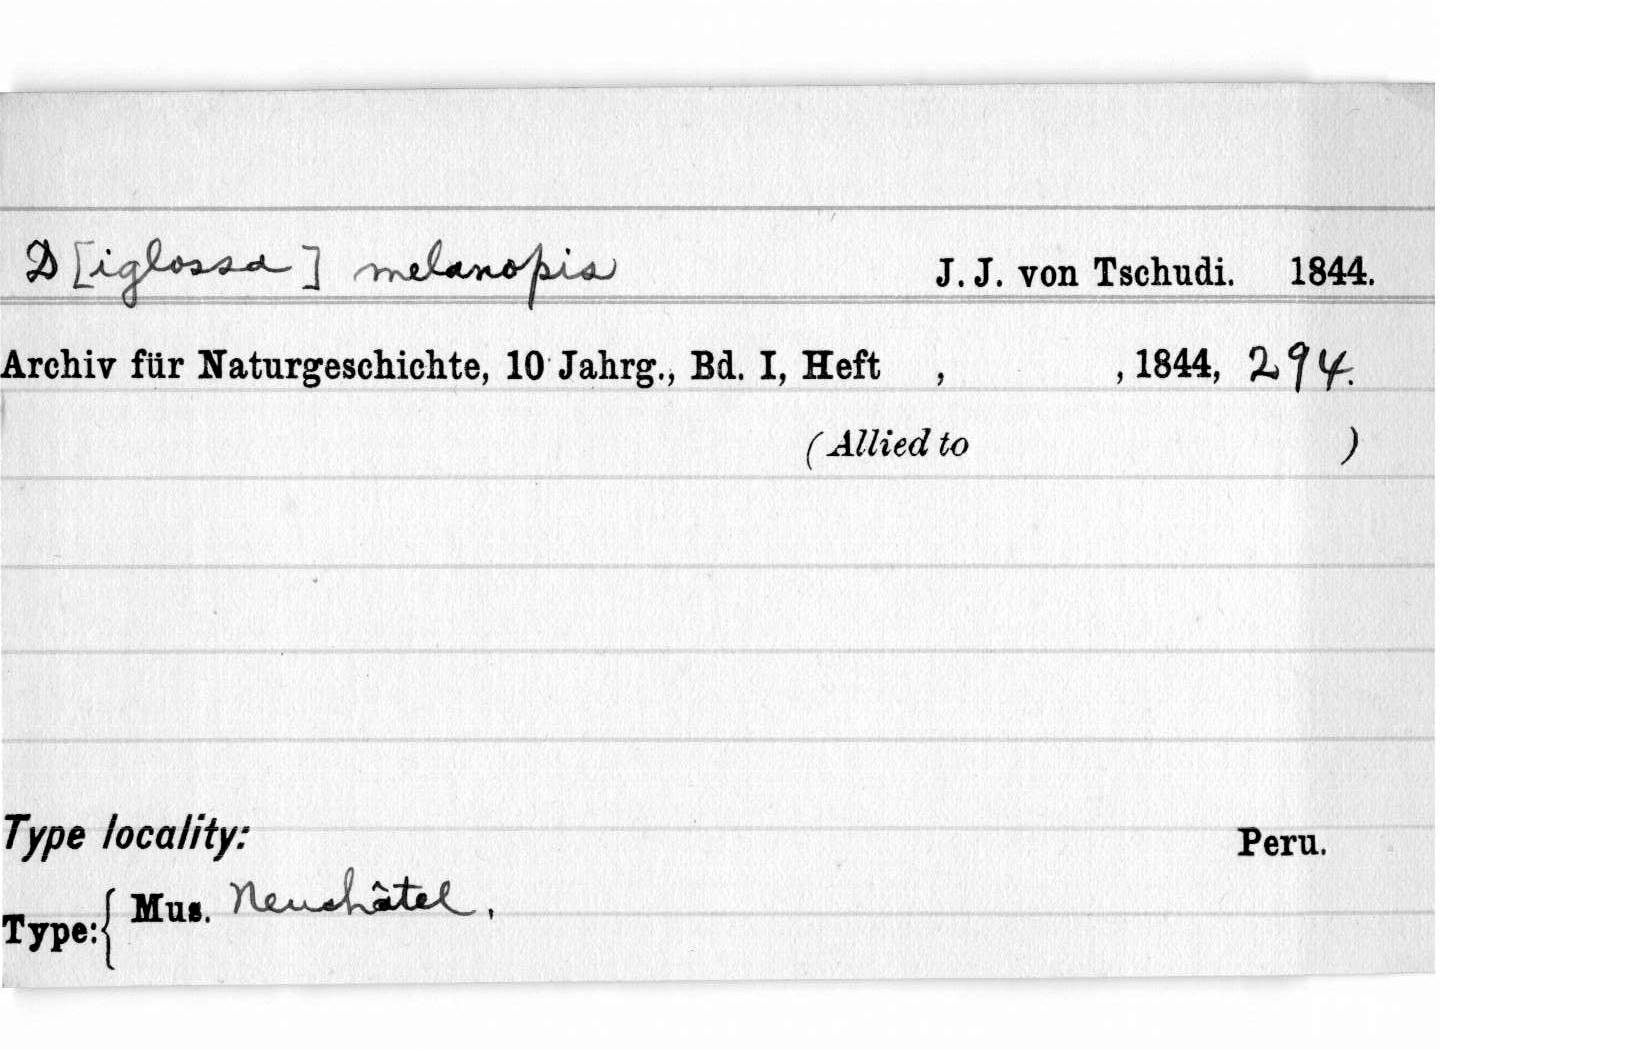 D[iglossa] melanopis J. J. von Tschudi. 1844.
Archiv für Naturgeschichte, 10 Jahrg., Bd. I, Heft , , 1844, 294.
(Allied to )
Type locality: Peru.
Type: { Mus. Neuchâtel.